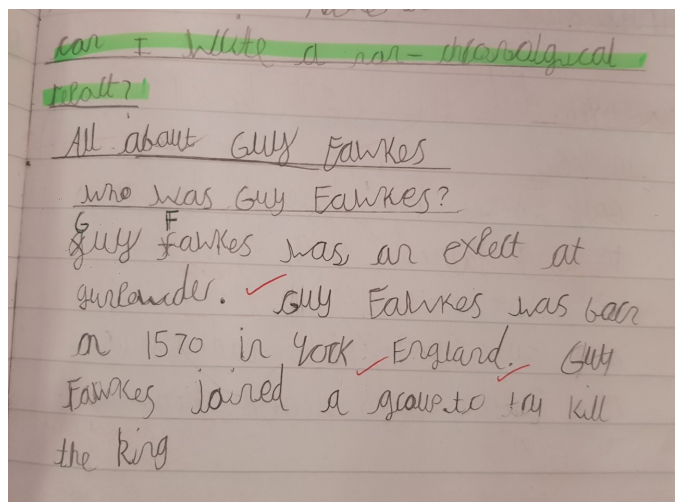 can I write a non-chronolgical
report?
All about Guy Fawkes
who was Guy Fawkes?
Guy Fawkes was an expert at
gunpowder. Guy Fawkes was born
on 1570 in York England. Guy
Fawkes joined a group to try kill
the king